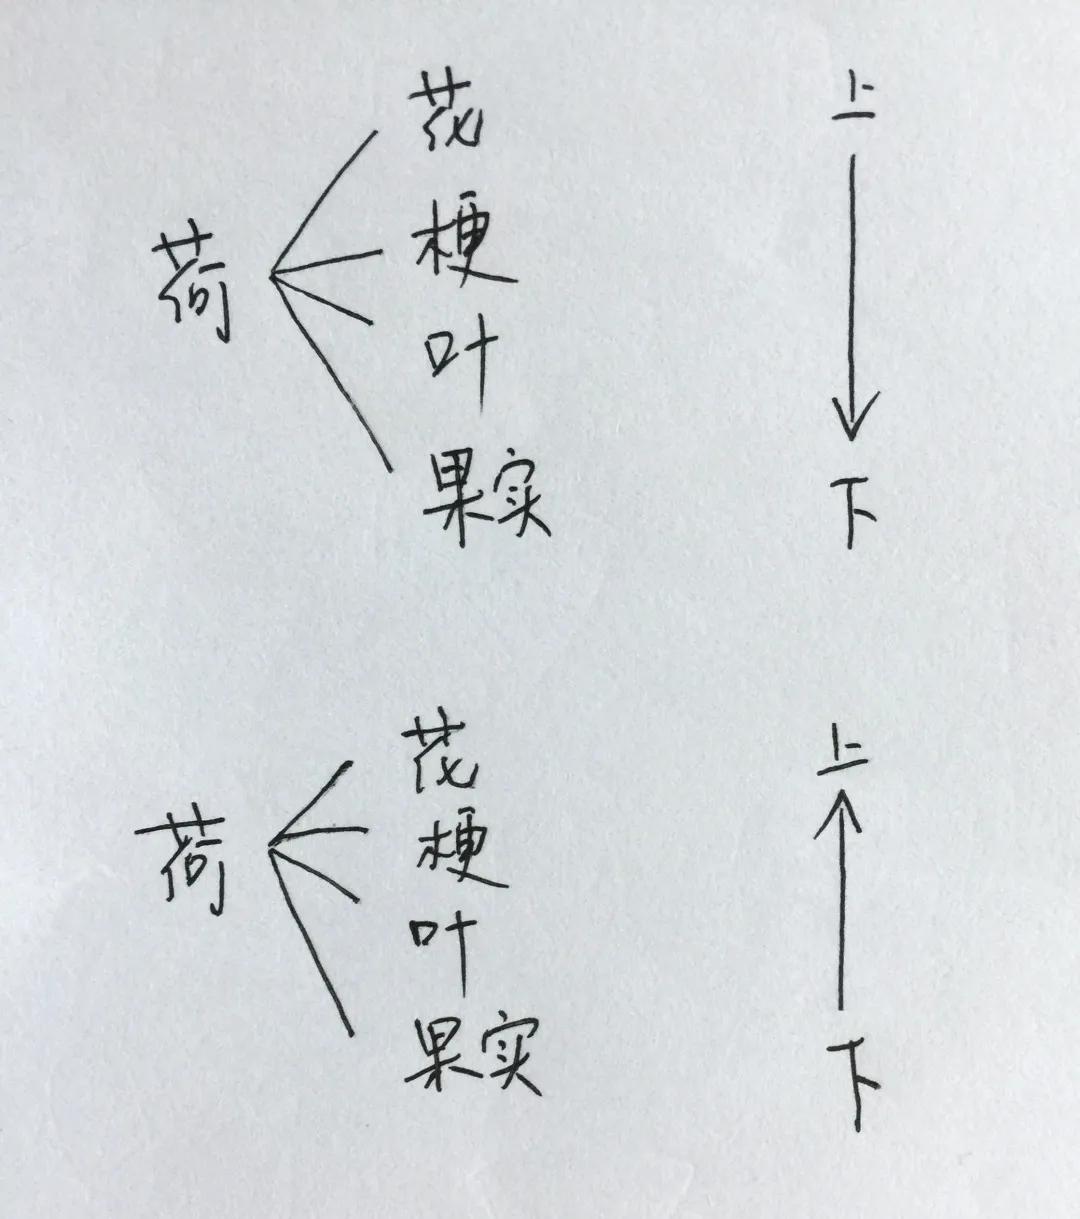 花
上
梗
荷
叶
果实
下
花
上
梗
荷
叶
果实
下